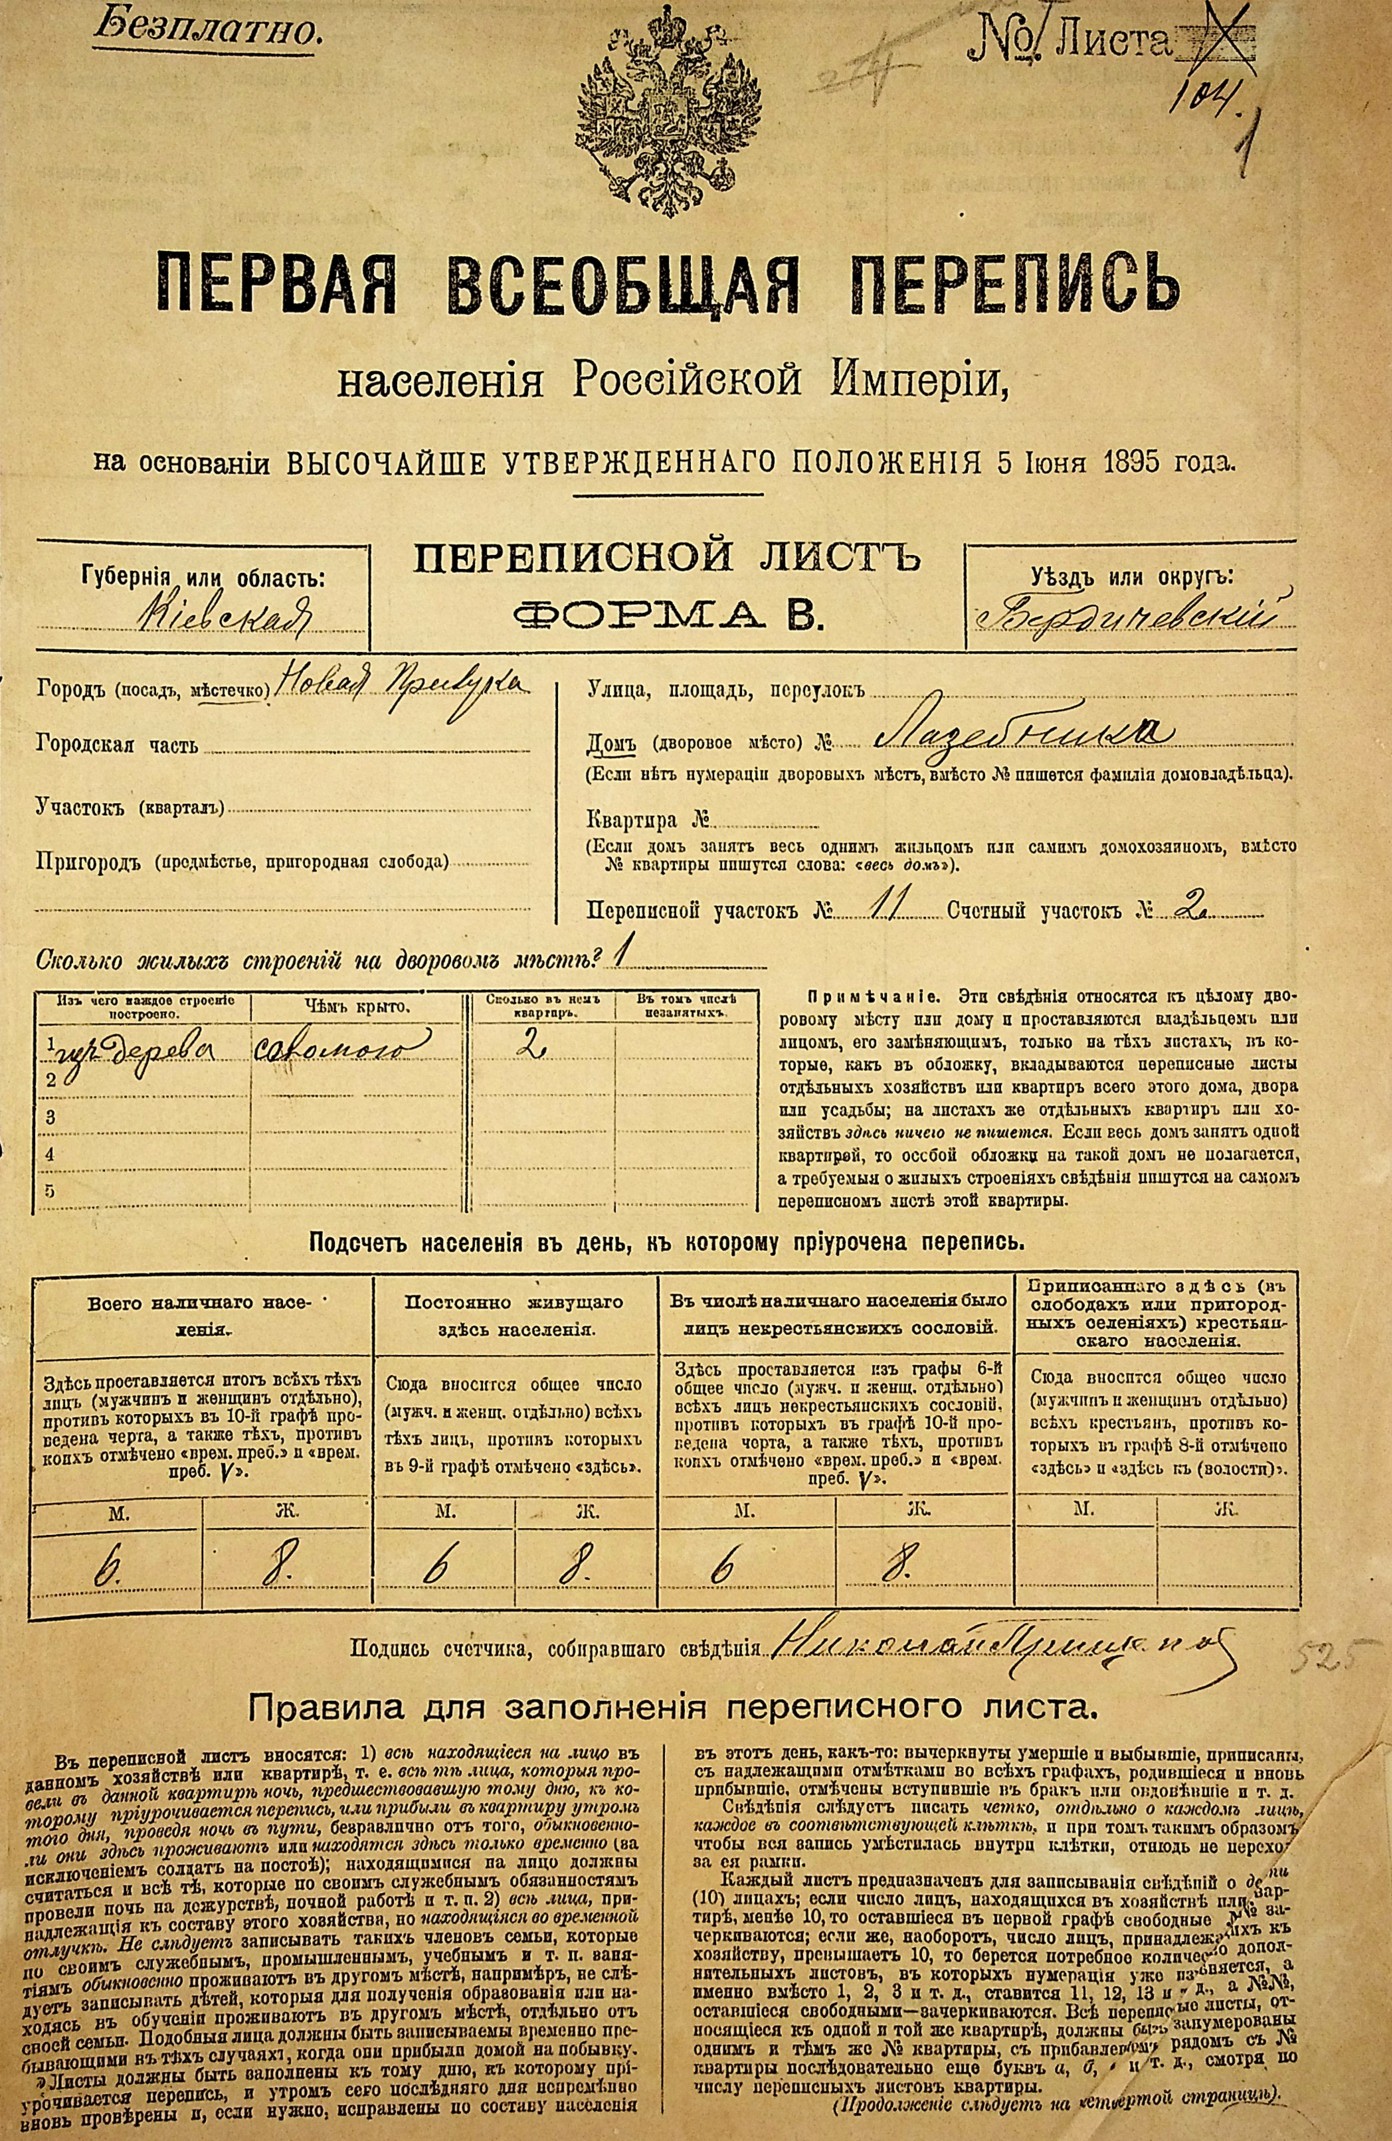 Безплатно.
№ Листа
104.
1
ПЕРВАЯ ВСЕОБЩАЯ ПЕРЕПИСЬ
населенія Россійской Имперіи,
на основаніи ВЫСОЧАЙШЕ УТВЕРЖДЕННАГО ПОЛОЖЕНІЯ 5 Іюня 1895 года.
Губернія или область:
Кіевская
ПЕРЕПИСНОЙ ЛИСТЪ
ФОРМА В.
Уѣздъ или округъ:
Бердичевскій
Городъ (посадъ, мѣстечко) Новая Прилука
Городская часть
Участокъ (кварталъ)
Пригородъ (предмѣстье, пригородная слобода)
Улица, площадь, переулокъ
Домъ (дворовое мѣсто) № Лазебника
(Если нѣтъ нумераціи дворовыхъ мѣстъ, вмѣсто № пишется фамилія домовладѣльца).
Квартира №
(Если домъ занятъ весь однимъ жильцомъ или самимъ домохозяиномъ, вмѣсто
№ квартиры пишутся слова: «весь домъ»).
Переписной участокъ № 11 Счетный участокъ № 2
Сколько жилыхъ строеній на дворовомъ мѣстѣ? 1
Изъ чего каждое строеніе
построено.
Чѣмъ крыто.
Сколько въ немъ
квартиръ.
Въ томъ числѣ
незанятыхъ.
1 изъ дерева соломою 2
2
3
4
5
Примѣчаніе. Эти свѣдѣнія относятся къ цѣлому дво-
ровому мѣсту или дому и проставляются владѣльцемъ или
лицомъ, его замѣняющимъ, только на тѣхъ листахъ, въ ко-
торые, какъ въ обложку, вкладываются переписные листы
отдѣльныхъ хозяйствъ или квартиръ всего этого дома, двора
или усадьбы; на листахъ же отдѣльныхъ квартиръ или хо-
зяйствъ здѣсь ничего не пишется. Если весь домъ занятъ одной
квартирой, то особой обложки на такой домъ не полагается,
а требуемыя о жилыхъ строеніяхъ свѣдѣнія пишутся на самомъ
переписномъ листѣ этой квартиры.
Подсчетъ населенія въ день, къ которому пріурочена перепись.
Всего наличнаго насе-
ленія.
Постоянно живущаго
здѣсь населенія.
Въ числѣ наличнаго населенія было
лицъ некрестьянскихъ сословій.
Приписаннаго здѣсь (въ
слободахъ или пригород-
ныхъ селеніяхъ) крестьян-
скаго населенія.
Здѣсь проставляется итогъ всѣхъ тѣхъ
лицъ (мужчинъ и женщинъ отдѣльно),
противъ которыхъ въ 10-й графѣ про-
ведена черта, а также тѣхъ, противъ
коихъ отмѣчено «врем. преб.» и «врем.
преб. V».
Сюда вносится общее число
(мужч. и женщ. отдѣльно) всѣхъ
тѣхъ лицъ, противъ которыхъ
въ 9-й графѣ отмѣчено «здѣсь».
Здѣсь проставляется изъ графы 6-й
общее число (мужч. и женщ. отдѣльно)
всѣхъ лицъ некрестьянскихъ сословій,
противъ которыхъ въ графѣ 10-й про-
ведена черта, а также тѣхъ, противъ
коихъ отмѣчено «врем. преб.» и «врем.
преб. V».
Сюда вносится общее число
(мужчинъ и женщинъ отдѣльно)
всѣхъ крестьянъ, противъ ко-
торыхъ въ графѣ 8-й отмѣчено
«здѣсь» и «здѣсь къ (волости)».
М. Ж. М. Ж. М. Ж. М. Ж.
6. 8. 6 8. 6 8.
Подпись счетчика, собиравшаго свѣдѣнія Николай
525
Правила для заполненія переписного листа.
Въ переписной листъ вносятся: 1) всѣ находящіеся на лицо въ
данномъ хозяйствѣ или квартирѣ, т. е. всѣ тѣ лица, которыя про-
вели въ данной квартирѣ ночь, предшествовавшую тому дню, къ ко-
торому пріурочивается перепись, или прибыли въ квартиру утромъ
того дня, проведя ночь въ пути, безразлично отъ того, обыкновенно-
ли они здѣсь проживаютъ или находятся здѣсь только временно (за
исключеніемъ солдатъ на постоѣ); находящимися на лицо должны
считаться и всѣ тѣ, которые по своимъ служебнымъ обязанностямъ
провели ночь на дежурствѣ, ночной работѣ и т. п. 2) всѣ лица, при-
надлежащія къ составу этого хозяйства, но находящіяся во временной
отлучкѣ. Не слѣдуетъ записывать такихъ членовъ семьи, которые
по своимъ служебнымъ, промышленнымъ, учебнымъ и т. п. заня-
тіямъ обыкновенно проживаютъ въ другомъ мѣстѣ, напримѣръ, не слѣ-
дуетъ записывать дѣтей, которыя для полученія образованія или на-
ходясь въ обученіи проживаютъ въ другомъ мѣстѣ, отдѣльно отъ
своей семьи. Подобныя лица должны быть записываемы временно пре-
бывающими въ тѣхъ случаяхъ, когда они прибыли домой на побывку.
Листы должны быть заполнены къ тому дню, къ которому прі-
урочивается перепись, и утромъ сего послѣдняго дня непремѣнно
вновь провѣрены и, если нужно, исправлены по составу населенія
въ этотъ день, какъ-то: вычеркнуты умершіе и выбывшіе, приписаны,
съ надлежащими отмѣтками во всѣхъ графахъ, родившіеся и вновь
прибывшіе, отмѣчены вступившіе въ бракъ или овдовѣвшіе и т. д.
Свѣдѣнія слѣдуетъ писать четко, отдѣльно о каждомъ лицѣ,
каждое въ соотвѣтствующей клѣткѣ, и при томъ такимъ образомъ,
чтобы вся запись умѣстилась внутри клѣтки, отнюдь не переход
за ея рамки.
Каждый листъ предназначенъ для записыванія свѣдѣній о де ти
(10) лицахъ; если число лицъ, находящихся въ хозяйствѣ или вар-
тирѣ, менѣе 10, то оставшіеся въ первой графѣ свободные №№ за-
черкиваются; если же, наоборотъ, число лицъ, принадлежа ихъ къ
хозяйству, превышаетъ 10, то берется потребное количес о допол-
нительныхъ листовъ, въ которыхъ нумерація уже из няется, а
именно вмѣсто 1, 2, 3 и т. д., ставится 11, 12, 13 и д., а №№,
оставшіеся свободными—зачеркиваются. Всѣ переписные листы, от-
носящіеся къ одной и той же квартирѣ, должны быть занумерованы
однимъ и тѣмъ же № квартиры, съ прибавлен мъ рядомъ съ №
квартиры послѣдовательно еще буквъ а, б, и т. д., смотря по
числу переписныхъ листовъ квартиры.
(Продолженіе слѣдуетъ на четвертой страницѣ).